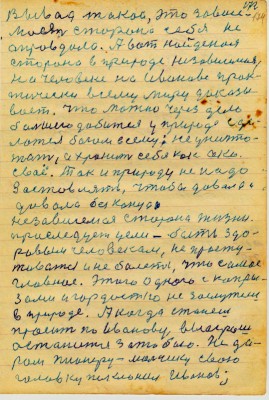 172
Вывод таков, это зависи-
мости сторона себя не
оправдала. А вот найденая
сторона в природе независимая,
на человеке на Иванове прак-
тически всему миру доказы-
вает. Что можно через дело
большего добится у природе сде-
латся богом всему; не уничто-
жать, и хранить себя как око
своё. Так и природу не надо
заставлять, чтобы давала а
давала без конца
независимая сторона жизни.
преследует цели – быть здо-
ровым человекам, не просту-
живатся и не болеть, что самое
главное. Этого одного с капры-
зами и гордостью не заслужиш
в природе. А когда станем
просить по Иванову, выиграш
останится за тобою. Не да-
ром пионеру-мальчику свою
головку поклонил Иванов;